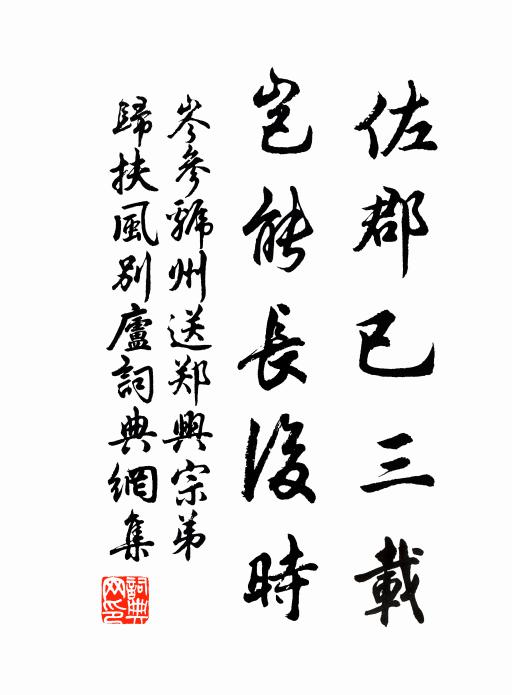 佐郡已三載
豈能長後時
岑參虢州送郑興宗弟
歸扶風別廬詞典網集
詞典网印